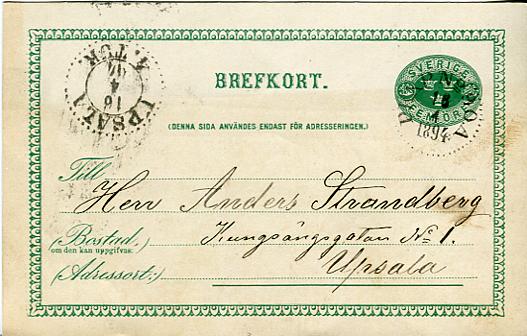 SVERIGE
FEM ÖRE
BREFKORT.
UPSALA
16
4
18
4
1894
(DENNA SIDA ANVÄNDES ENDAST FÖR ADRESSERINGEN.)
Till Herr Anders Strandberg
(Bostad, Kungsängsgatan No 1.
om den kan uppgifvas:)
Upsala
(Adressort:)